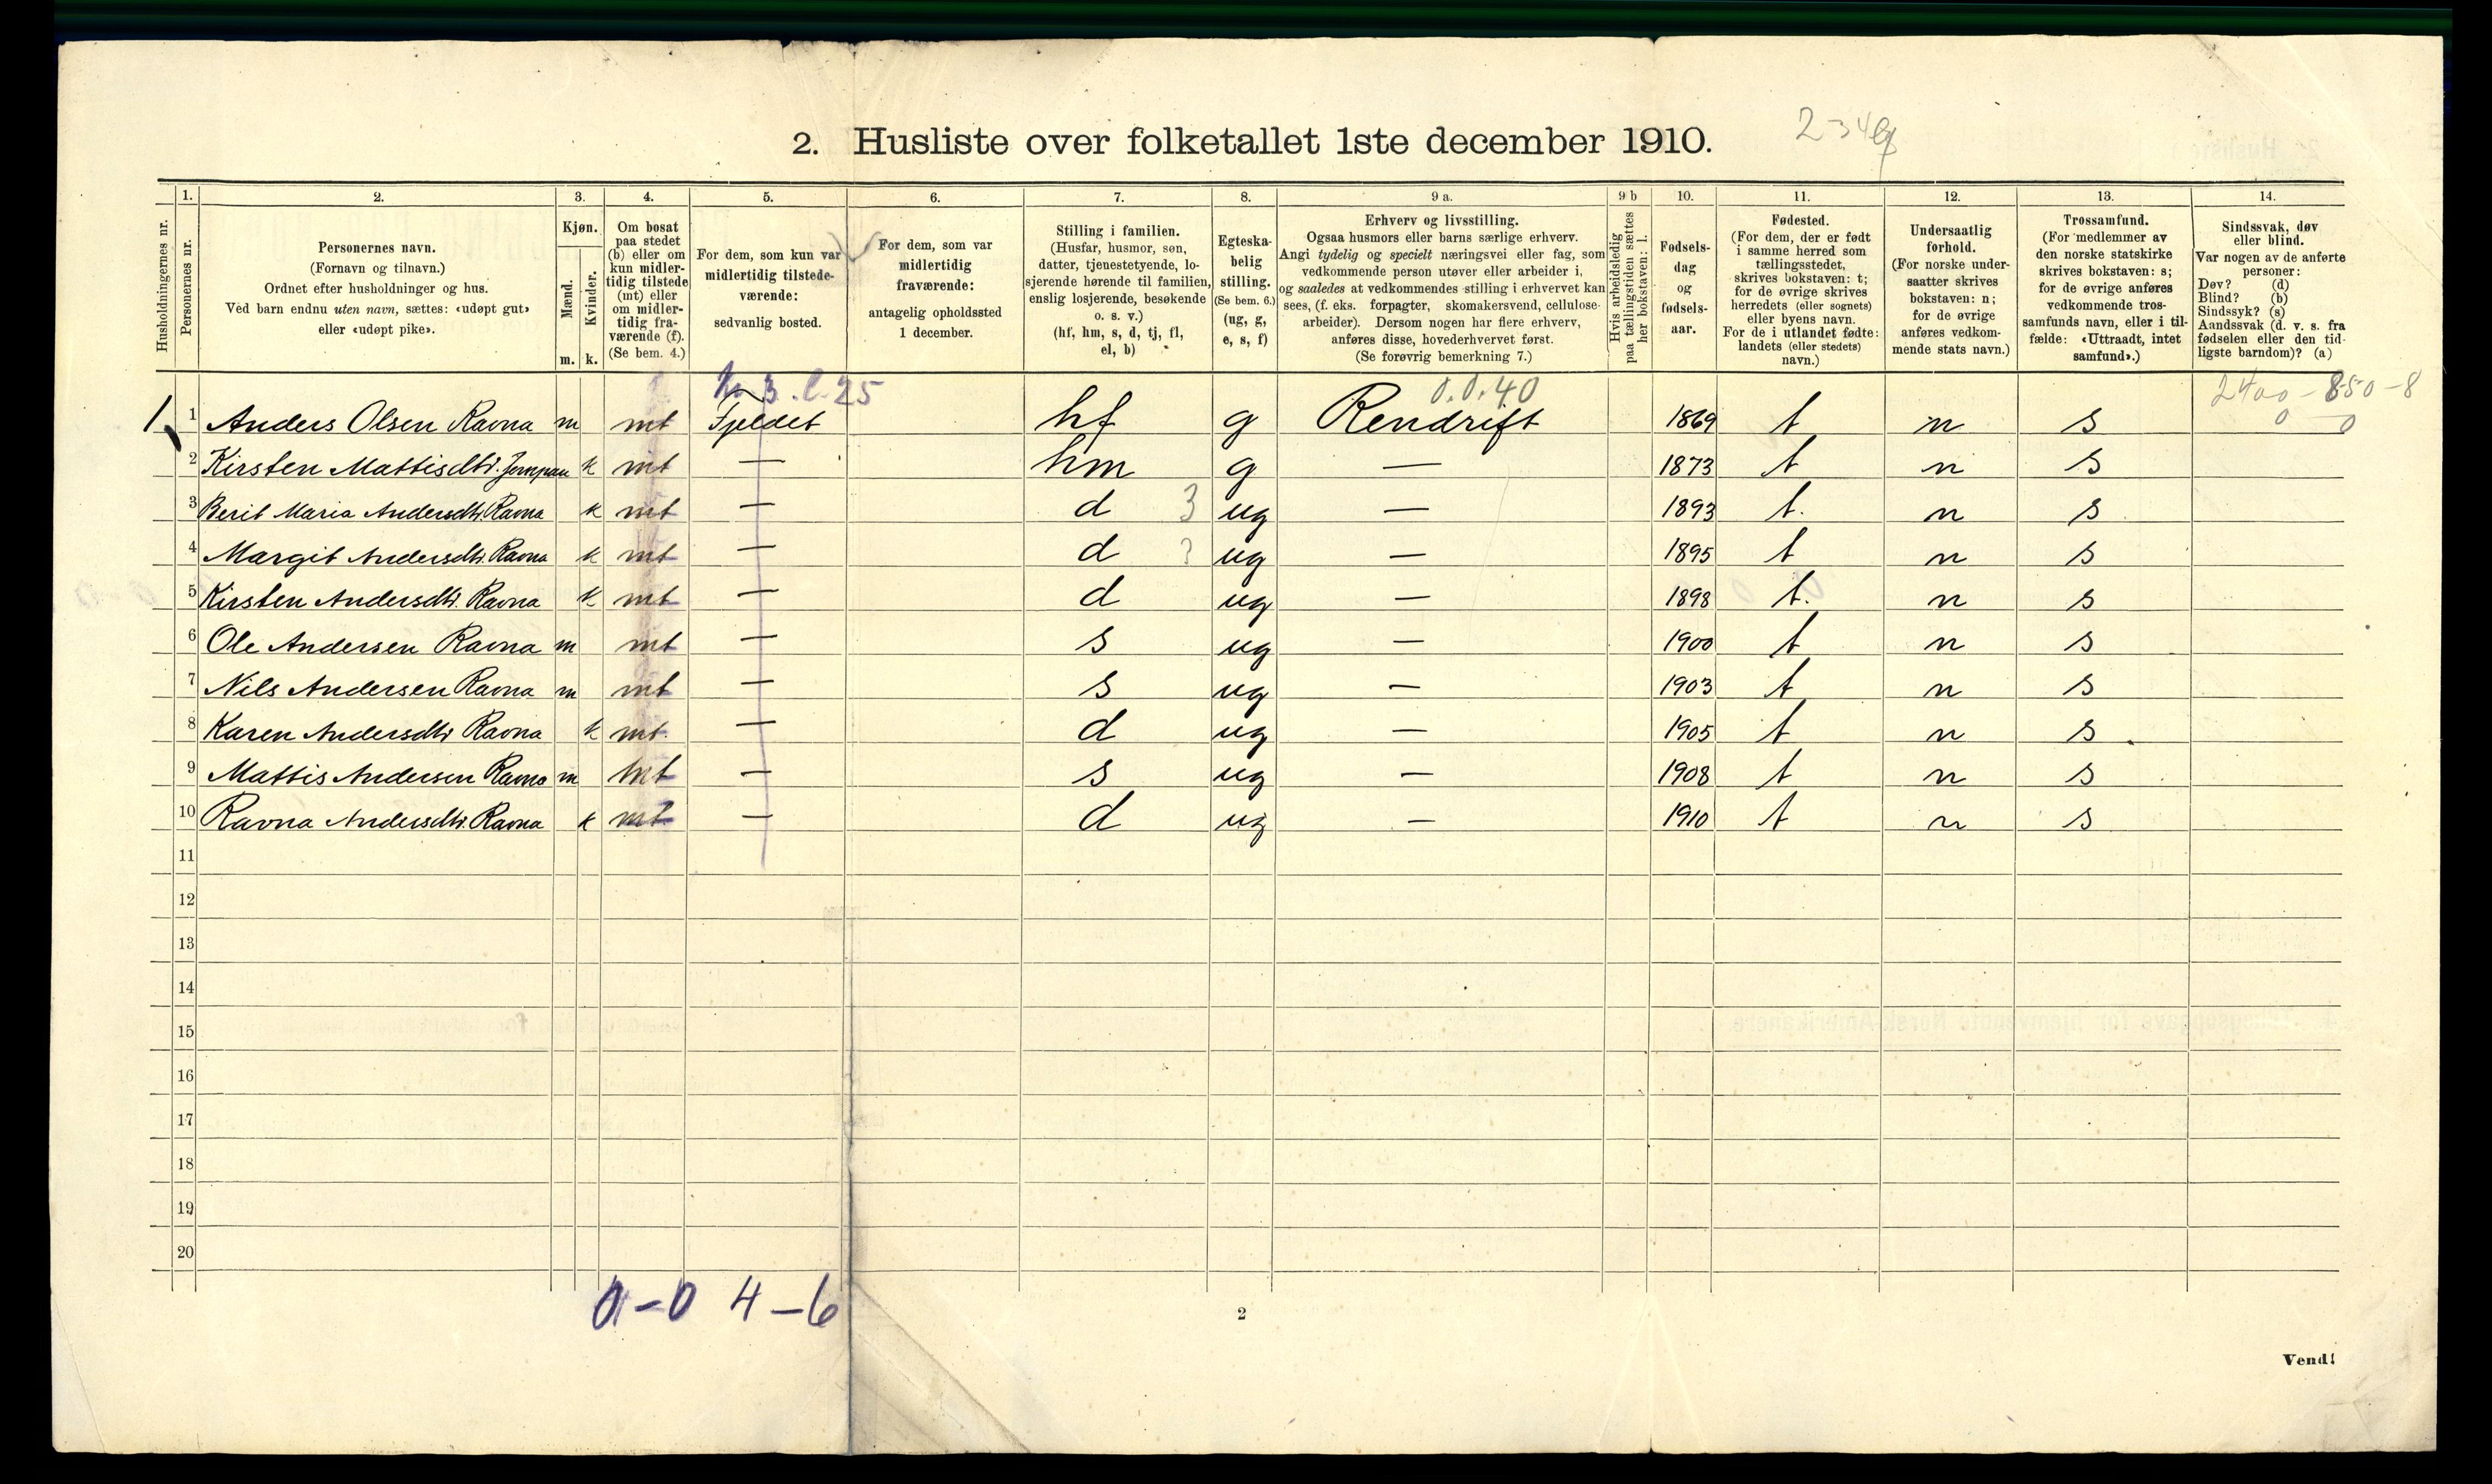 2. Husliste over folketallet 1ste december 1910.
Husholdningernes nr.
1.
Personernes nr.
2.
Personernes navn.
(Fornavn og tilnavn.)
Ordnet efter husholdninger og hus.
Ved barn endnu uten navn, sættes: «udøpt gut»
eller «udøpt pike».
3.
Kjøn.
Mænd.
Kvinder.
m. k.
4.
Om bosat
paa stedet
(b) eller om
kun midler-
tidig tilstede
(mt) eller
om midler-
tidig fra-
værende (f).
(Se bem. 4.)
5.
For dem, som kun var
midlertidig tilstede-
værende:
sedvanlig bosted.
6.
For dem, som var
midlertidig
fraværende:
antagelig opholdssted
1 december.
7.
Stilling i familien.
(Husfar, husmor, søn,
datter, tjenestetyende, lo-
sjerende hørende til familien,
enslig losjerende, besøkende
o. s. v.)
(hf, hm, s, d, tj, fl,
el, b)
8.
Egteska-
belig
stilling.
(Se bem. 6.)
(ug, g,
e, s, f)
9 a.
Erhverv og livsstilling.
Ogsaa husmors eller barns særlige erhverv.
Angi tydelig og specielt næringsvei eller fag, som
vedkommende person utøver eller arbeider i,
og saaledes at vedkommendes stilling i erhvervet kan
sees, (f. eks. forpagter, skomakersvend, cellulose-
arbeider). Dersom nogen har flere erhverv,
anføres disse, hovederhvervet først.
(Se forøvrig bemerkning 7.)
9 b
Hvis arbeidsledig
paa tællingstiden sættes
her bokstaven: l.
10.
Fødsels-
dag
og
fødsels-
aar.
11.
Fødested.
(For dem, der er født
i samme herred som
tællingsstedet,
skrives bokstaven: t;
for de øvrige skrives
herredets (eller sognets)
eller byens navn.
For de i utlandet fødte:
landets (eller stedets)
navn.)
12.
Undersaatlig
forhold.
(For norske under-
saatter skrives
bokstaven: n;
for de øvrige
anføres vedkom-
mende stats navn.)
13.
Trossamfund.
(For medlemmer av
den norske statskirke
skrives bokstaven: s;
for de øvrige anføres
vedkommende tros-
samfunds navn, eller i til-
fælde: «Uttraadt, intet
samfund».)
14.
Sindssvak, døv
eller blind.
Var nogen av de anførte
personer:
Døv? (d)
Blind? (b)
Sindssyk? (s)
Aandssvak (d. v. s. fra
fødselen eller den tid-
ligste barndom)? (a)
0.0.40
2400 - 850 - 8
0 0
1. 1 Anders Olsen Ravna m mt Fjeldet hf g Rendrift 1869 t n s
2 Kirsten Mattisdtr. k mt — hm g — 1873 t n s
3 Berit Maria Andersdtr. Ravna k mt — d 3 ug — 1893 t. n s
4 Margit Andersdtr. Ravna k mt — d 3 ug — 1895 t n s
5 Kirsten Andersdtr. Ravna k mt — d ug — 1898 t. n s
6 Ole Andersen Ravna m mt — s ug — 1900 t n s
7 Nils Andersen Ravna m mt — s ug — 1903 t n s
8 Karen Andersdtr Ravna k mt. — d ug — 1905 t n s
9 Mattis Andersen Ravna m mt — s ug — 1908 t n s
10 Ravna Andersdtr. Ravna k mt — d ug — 1910 t n s
11
12
13
14
15
16
17
18
19
20
0 - 0 4 - 6
2
Vend!